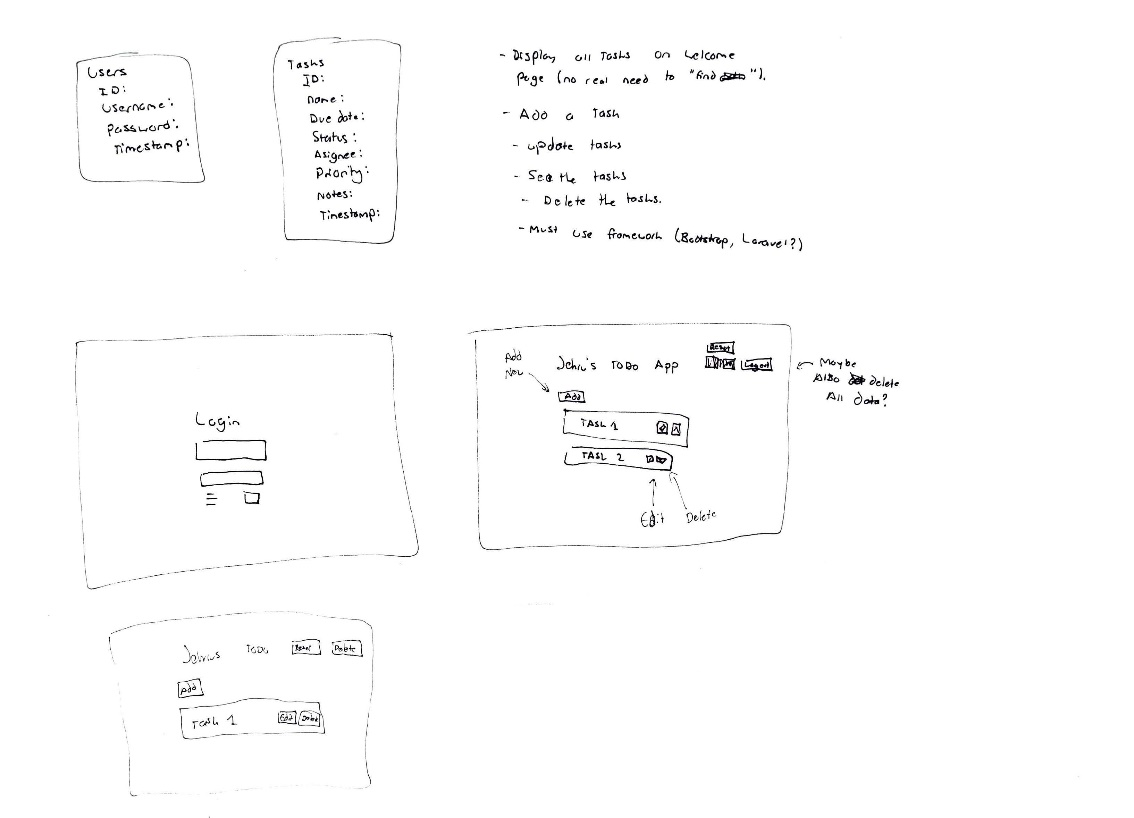 Users
ID:
Username:
Password:
Timestamp:
Tasks
ID:
Name:
Due date:
Status:
Asignee:
Priority:
Notes:
Timestamp:
- Display all Tasks on welcome
page (no real need to "find ").
- Add a Task
- update tasks
- See the tasks
- Delete the tasks.
- Must use framework (Bootstrap, Laravel?)
Login
Add
New
Jehiu's ToDo App
Reset
Logout
Maybe
Also delete
All data?
Add
TASK 1
TASK 2
Edit
Delete
Jehius ToDo Reset Delete
Add
Task 1 Edit Delete